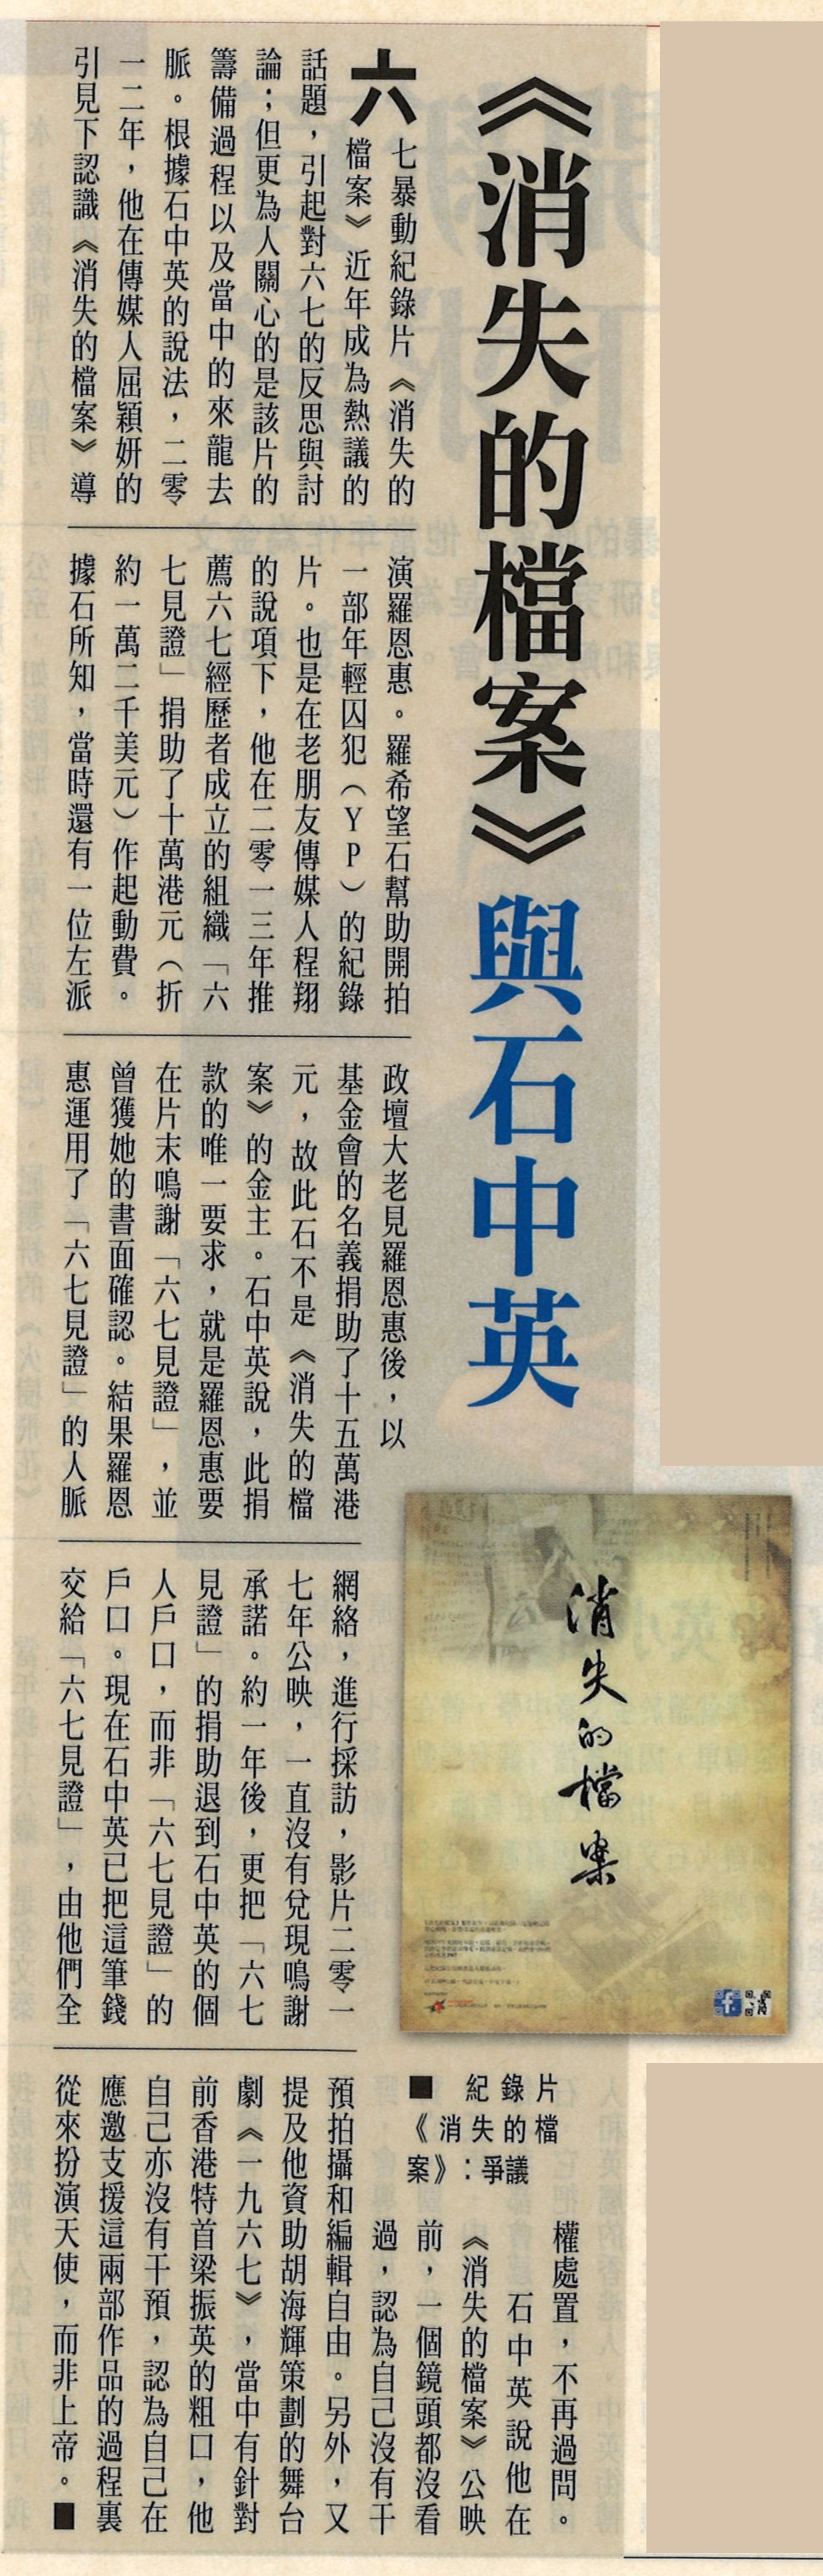 《消失的檔案》與石中英
六七暴動紀錄片《消失的
檔案》近年成為熱議的
話題，引起對六七的反思與討
論；但更為人關心的是該片的
籌備過程以及當中的來龍去
脈。根據石中英的說法，二零
一二年，他在傳媒人屈穎妍的
引見下認識《消失的檔案》導
演羅恩惠。羅希望石幫助開拍
一部年輕囚犯（YP）的紀錄
片。也是在老朋友傳媒人程翔
的說項下，他在二零一三年推
薦六七經歷者成立的組織「六
七見證」捐助了十萬港元（折
約一萬二千美元）作起動費。
據石所知，當時還有一位左派
政壇大老見羅恩惠後，以
基金會的名義捐助了十五萬港
元，故此石不是《消失的檔
案》的金主。石中英說，此捐
款的唯一要求，就是羅恩惠要
在片末鳴謝「六七見證」，並
曾獲她的書面確認。結果羅恩
惠運用了「六七見證」的人脈
網絡，進行採訪，影片二零一
七年公映，一直沒有兌現鳴謝
承諾。約一年後，更把「六七
見證」的捐助退到石中英的個
人戶口，而非「六七見證」的
戶口。現在石中英已把這筆錢
交給「六七見證」，由他們全
權處置，不再過問。
石中英說他在
《消失的檔案》公映
前，一個鏡頭都沒看
過，認為自己沒有干
預拍攝和編輯自由。另外，又
提及他資助胡海輝策劃的舞台
劇《一九六七》，當中有針對
前香港特首梁振英的粗口，他
自己亦沒有干預，認為自己在
應邀支援這兩部作品的過程裏
從來扮演天使，而非上帝。■
消失的檔案
■ 紀錄片
《消失的檔
案》：爭議